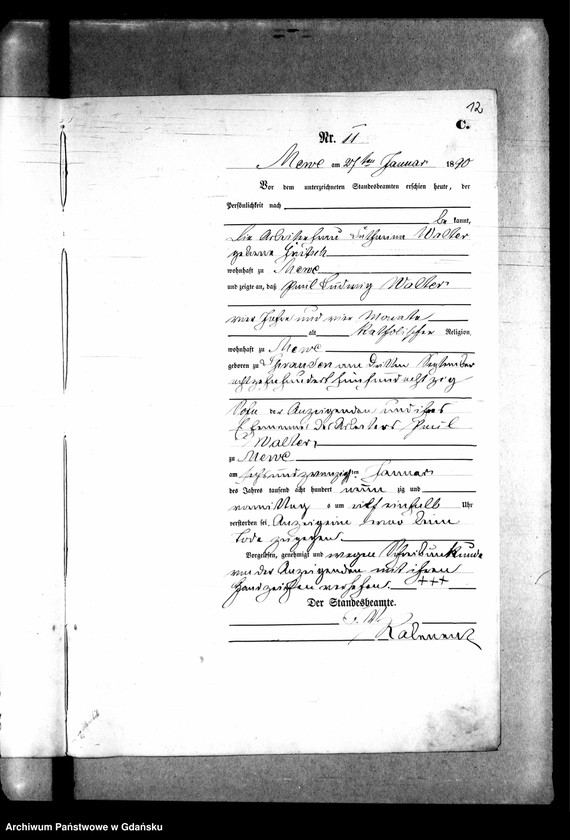 12
C.
Nr. 11
Mewe am 27ten Januar 1890
Vor dem unterzeichneten Standesbeamten erschien heute, der
Persönlichkeit nach
be kannt,
die Arbeiterfrau Walter
geborne
wohnhaft zu Mewe
und zeigte an, daß Paul Ludwig Walter
vier Jahre und vier Monate
alt, katholischer Religion,
wohnhaft zu Mewe
geboren zu am dritten September
achtzehnhundert fünfundachtzig
Sohn der Anzeigenden und ihres
Ehemannes des Arbeiters Paul
Walter,
zu Mewe
am sechsundzwanzigsten Januar
des Jahres tausend acht hundert neun zig und
vormittag s um elf einhalb Uhr
verstorben sei. Anzeigerin war beim
Tode zugegen.
Vorgelesen, genehmigt und wegen Schreibunkunde
von der Anzeigenden mit ihren
Handzeichen versehen. +++
Der Standesbeamte.
Archiwum Państwowe w Gdańsku